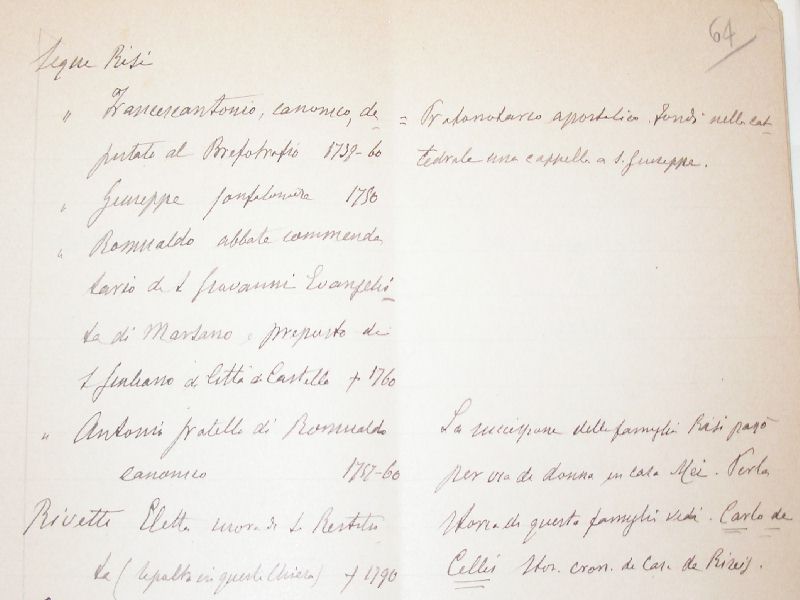 64
Segue Risi
" Francescantonio, canonico, de- = Protonotario apostolico. Fondò nella cat-
putato al Brefotrofio 1739-60 tedrale una cappella a S. Giuseppe.
" Giuseppe gonfaloniere 1750
" Romualdo abbate commenda
tario di S Giovanni Evangelis-
ta di Marsano e preposto di
S Giuliano di Città di Castello + 1760
" Antonio fratello di Romualdo
canonico 1757-60
La successione della famiglia Risi passò
per via di donna in casa Mei. Per la
storia di questa famiglia vedi. Carlo de
Cellis Stor. cron. di Cas. de Rizi.
Rivetti Eletta suora di S. Restitu
ta (sepolta in questa Chiesa) + 1790